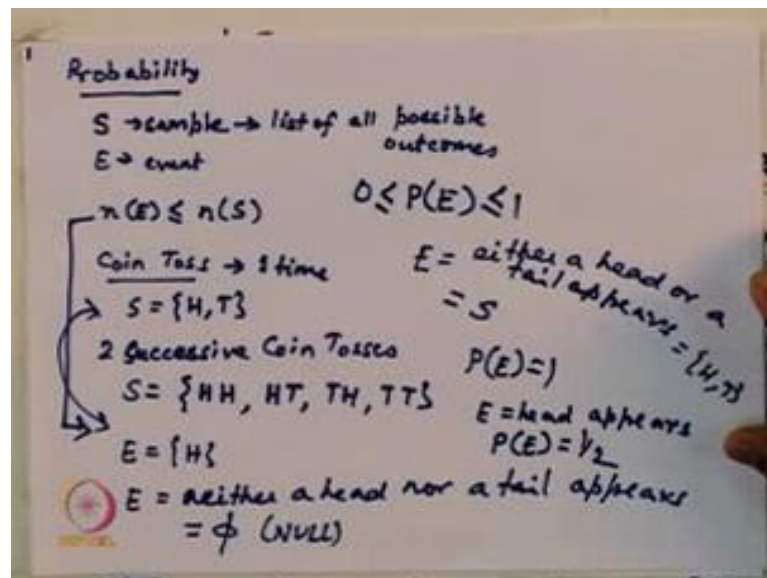 1
Probability
S → sample → list of all possible
outcomes
E → event
n(E) ≤ n(S)
0 ≤ P(E) ≤ 1
Coin Toss → 1 time
S = {H, T}
E = either a head or a
tail appears = {H, T}
= S
P(E) = 1
2 Successive Coin Tosses
S = {HH, HT, TH, TT}
E = head appears
P(E) = 1/2
E = {H}
E = neither a head nor a tail appears
= ϕ (NULL)